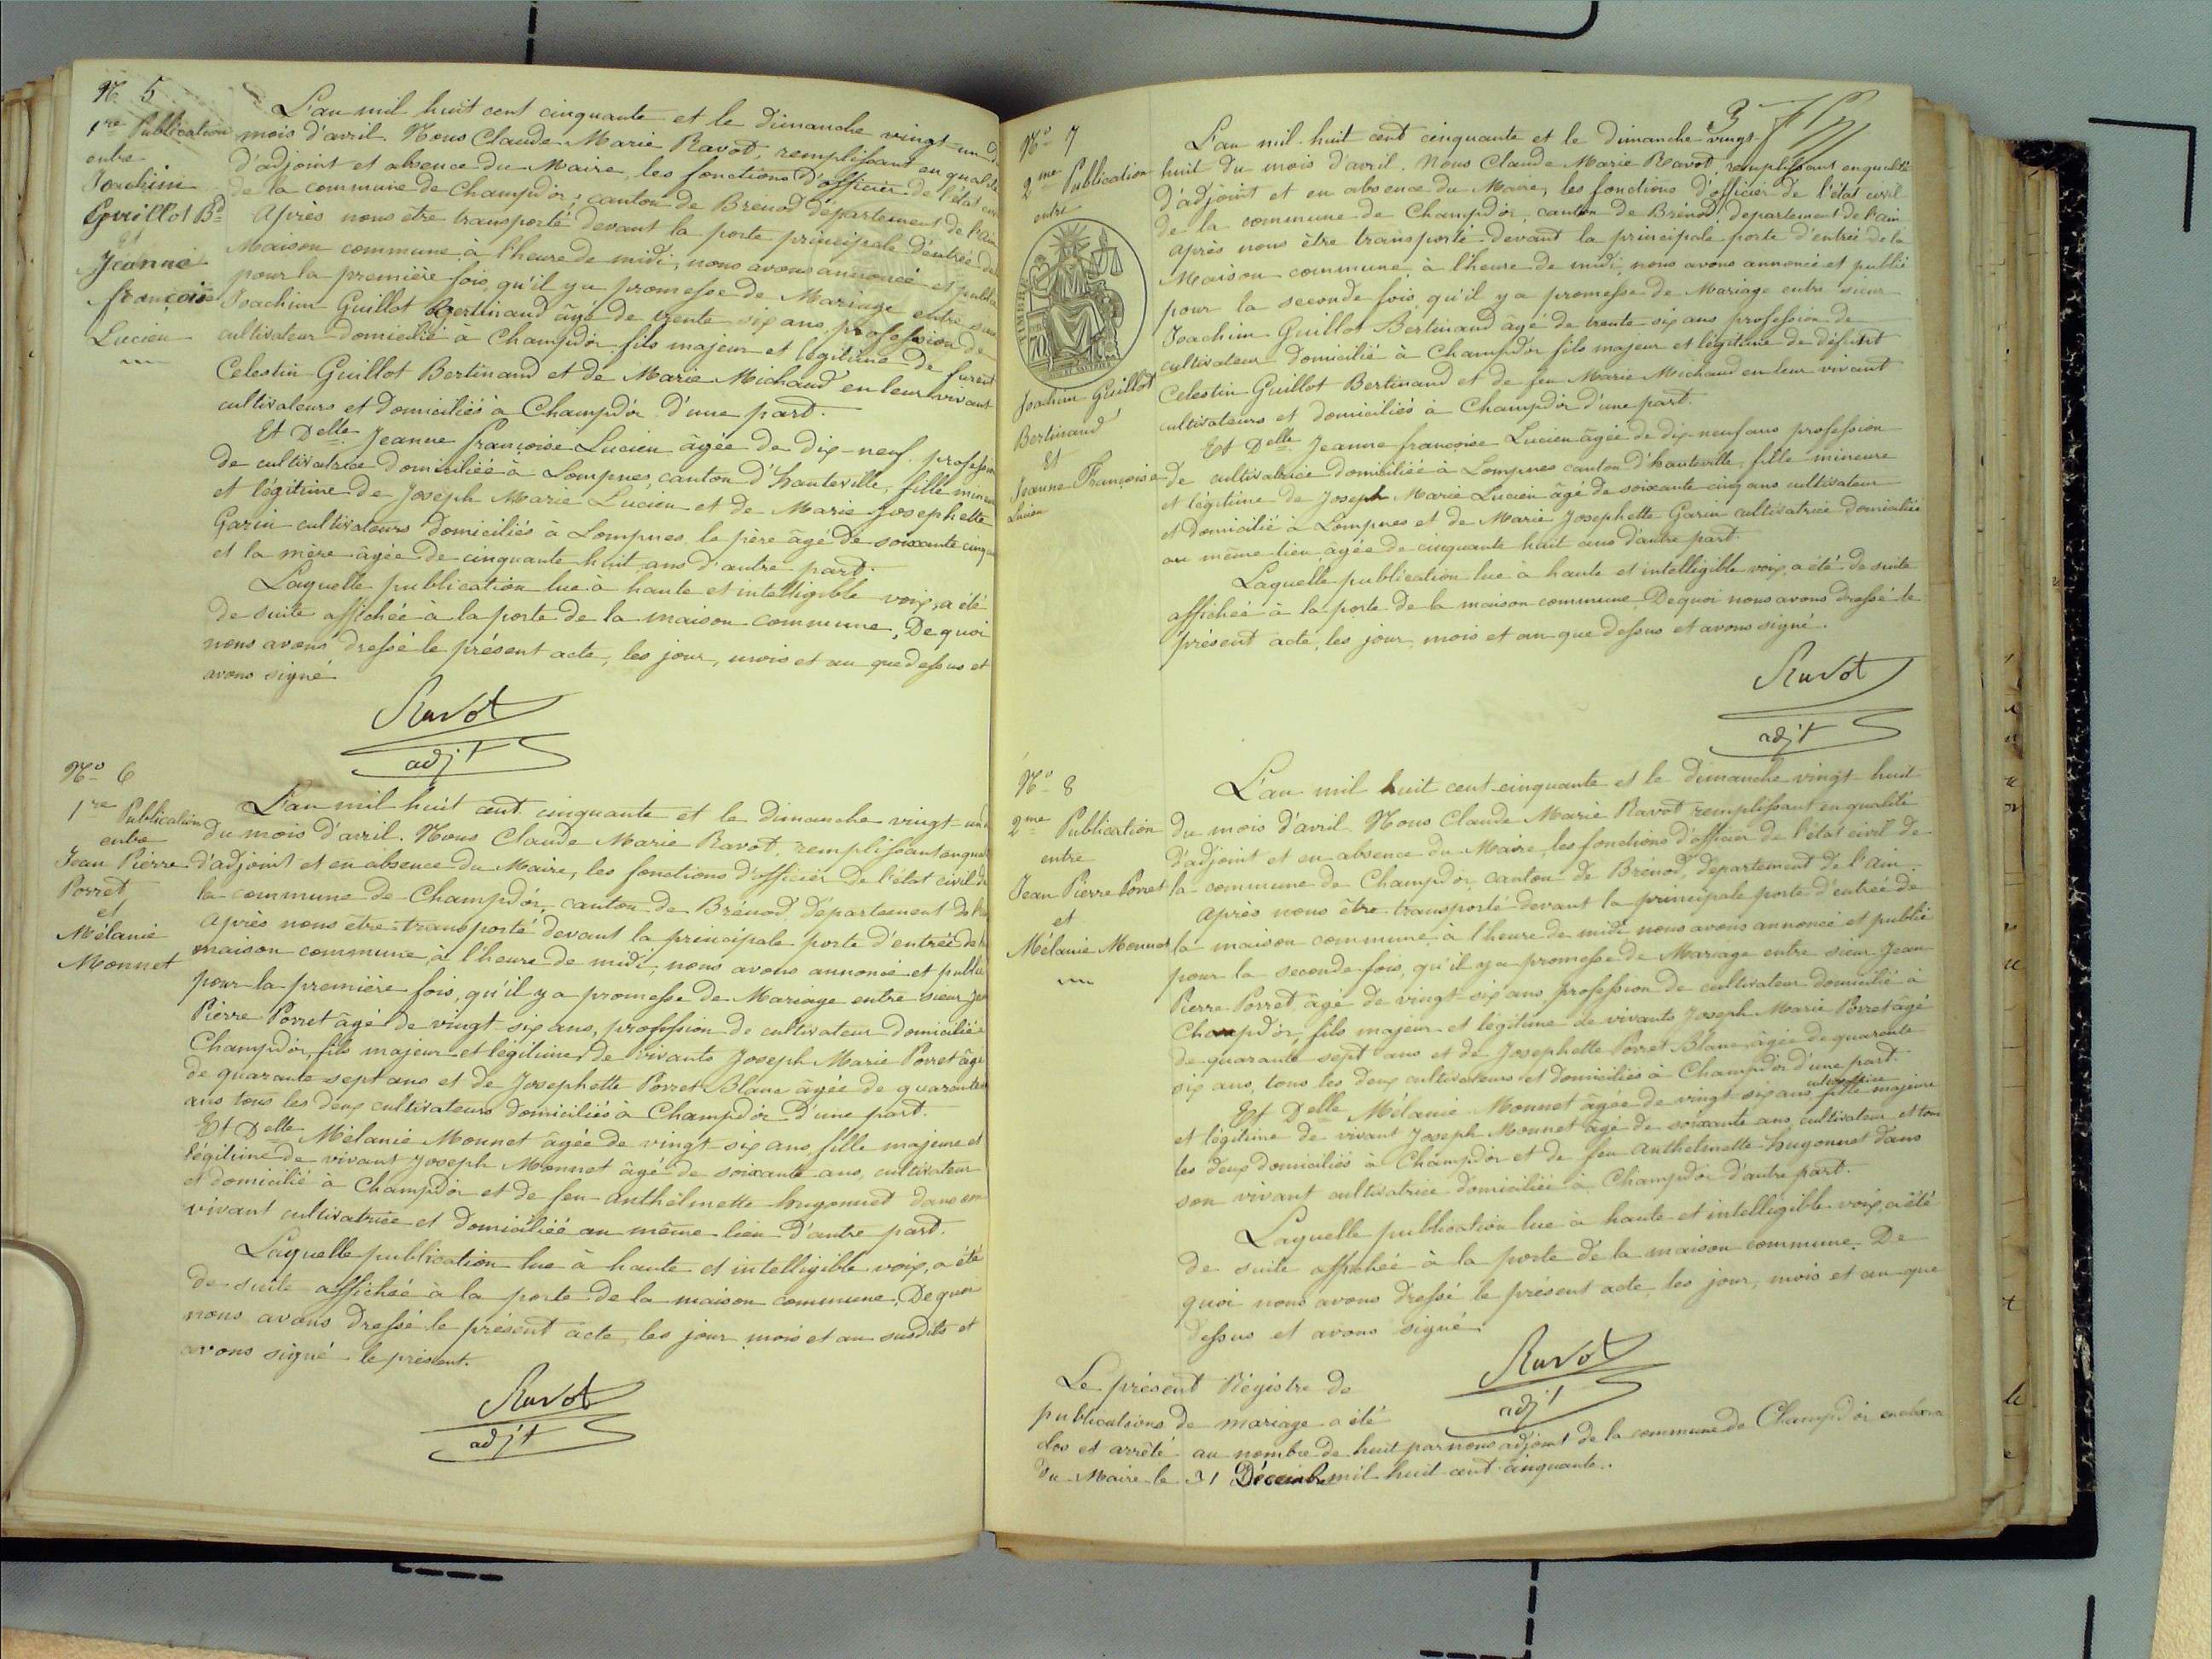 N° 5
1re Publication
entre
Joachim
Guillot Bd
Et
Jeanne
françoise
Lucien
L'an mil huit cent cinquante et le dimanche vingt-un du
mois d'avril. Nous Claude Marie Ravot, remplissant en qualité
d'adjoint et absence du Maire, les fonctions d'officier de l'état civil
de la commune de Champdor, canton de Brenod département de l'ain
Après nous être transporté devant la porte principale d'entrée de
Maison commune, à l'heure de midi, nous avons annoncé et publié
pour la première fois, qu'il y a promesse de Mariage entre sieur
Joachim Guillot Bertinand âgé de trente six ans, profession de
cultivateur domicilié à Champdor fils majeur et légitime de furent
Celestin Guillot Bertinand et de Marie Michaud en leur vivant
cultivateurs et domiciliés à Champdor d'une part.
Et Delle Jeanne françoise Lucien âgée de dix-neuf profession
de cultivatrice domiciliée à Lompnes, canton d'hauteville, fille mineure
et légitime de Joseph Marie Lucien et de Marie Josephette
Garin cultivateurs domiciliés à Lompnes le père âgé de soixante cinq ans
et la mère âgée de cinquante huit ans d'autre part.
Laquelle publication lue à haute et intelligible voix, a été
de suite affichée à la porte de la maison commune, De quoi
nous avons dressé le présent acte, les jour, mois et an que dessus et
avons signé
Ravot
adjt
N° 6
1re Publication
entre
Jean Pierre
Porret
et
Mélanie
Monnet
L'an mil huit cent cinquante et le dimanche vingt-un
du mois d'avril. Nous Claude Marie Ravot, remplissant en qualité
d'adjoint et en absence du Maire, les fonctions d'officier de l'état civil de
la commune de Champdor, canton de Brénod, département de l'ain
Après nous être transporté devant la principale porte d'entrée de la
maison commune, à l'heure de midi, nous avons annoncé et publié
pour la première fois, qu'il y a promesse de Mariage entre sieur Jean
Pierre Porret âgé de vingt-six ans, profession de cultivateur domicilié à
Champdor, fils majeur et légitime de vivants Joseph Marie Porret âgé
de quarante sept ans et de Josephette Porret Blanc âgée de quarante six
ans tous les deux cultivateurs domiciliés à Champdor d'une part.
Et Delle Mélanie Monnet âgée de vingt-six ans, fille majeure et
légitime de vivant Joseph Monnet âgé de soixante ans, cultivateur
et domicilié à Champdor et de feu Anthelmette hugonnet dans son
vivant cultivatrice et domiciliée au même lieu d'autre part.
Laquelle publication lue à haute et intelligible voix, a été
de suite affichée à la porte de la maison commune, De quoi
nous avons dressé le présent acte, les jour mois et an susdits et
avons signé le présent.
Ravot
adjt
3
N° 7
2me Publication
entre
Joachim Guillot
Bertinand
Et
Jeanne Françoise
Lucien
L'an mil huit cent cinquante et le dimanche vingt
huit du mois d'avril. Nous Claude Marie Ravot, remplissant en qualité
d'adjoint et en absence du Maire, les fonctions d'officier de l'état civil
de la commune de Champdor, canton de Brénod, departement de l'ain
Après nous être transporté devant la principale porte d'entrée de la
Maison commune, à l'heure de midi, nous avons annoncé et publié
pour la seconde fois, qu'il y a promesse de Mariage entre sieur
Joachim Guillot Bertinand âgé de trente six ans profession de
cultivateur domicilié à Champdor fils majeur et légitime de défunt
Celestin Guillot Bertinand et de feu Marie Michaud en leur vivant
cultivateurs et domiciliés à Champdor d'une part.
Et Delle Jeanne françoise Lucien âgée de dix-neuf ans profession
de cultivatrice domiciliée à Lompnes canton d'hauteville, fille mineure
et légitime de Joseph Marie Lucien âgé de soixante cinq ans cultivateur
et domicilié à Lompnes et de Marie Josephette Garin cultivatrice domiciliée
au même lieu âgée de cinquante huit ans d'autre part.
Laquelle publication lue à haute et intelligible voix, a été de suite
affichée à la porte de la maison commune. De quoi nous avons dressé le
présent acte, les jour, mois et an que dessus et avons signé.
Ravot
adjt
N° 8
2me Publication
entre
Jean Pierre Porret
et
Mélanie Monnet
L'an mil huit cent cinquante et le dimanche vingt-huit
du mois d'avril. Nous Claude Marie Ravot remplissant en qualité
d'adjoint et en absence du Maire, les fonctions d'officier de l'état civil de
la commune de Champdor, canton de Brénod, département de l'ain
Après nous être transporté devant la principale porte d'entrée de
la maison commune à l'heure de midi nous avons annoncé et publié
pour la seconde fois, qu'il y a promesse de Mariage entre sieur Jean
Pierre Porret âgé de vingt-six ans profession de cultivateur domicilié à
Champdor, fils majeur et légitime de vivants Joseph Marie Porret âgé
de quarante sept ans et de Josephette Porret Blanc, âgée de quarante
six ans, tous les deux cultivateurs et domiciliés à Champdor d'une part.
Et Delle Mélanie Monnet âgée de vingt-six ans cultivatrice fille majeure
et légitime de vivant Joseph Monnet âgé de soixante ans, cultivateur et tous
les deux domiciliés à Champdor et de feu Anthelmette hugonnet dans
son vivant cultivatrice domiciliée à Champdor d'autre part.
Laquelle publication lue à haute et intelligible voix, a été
de suite affichée à la porte de la maison commune. De
quoi nous avons dressé le présent acte, les jour, mois et an que
dessus et avons signé.
Ravot
adjt
Le présent Régistre de
publications de mariage a été
clos et arrêté au nombre de huit par nous adjoint de la commune de Champdor en absence
du Maire le 31 Décembre mil huit cent cinquante.